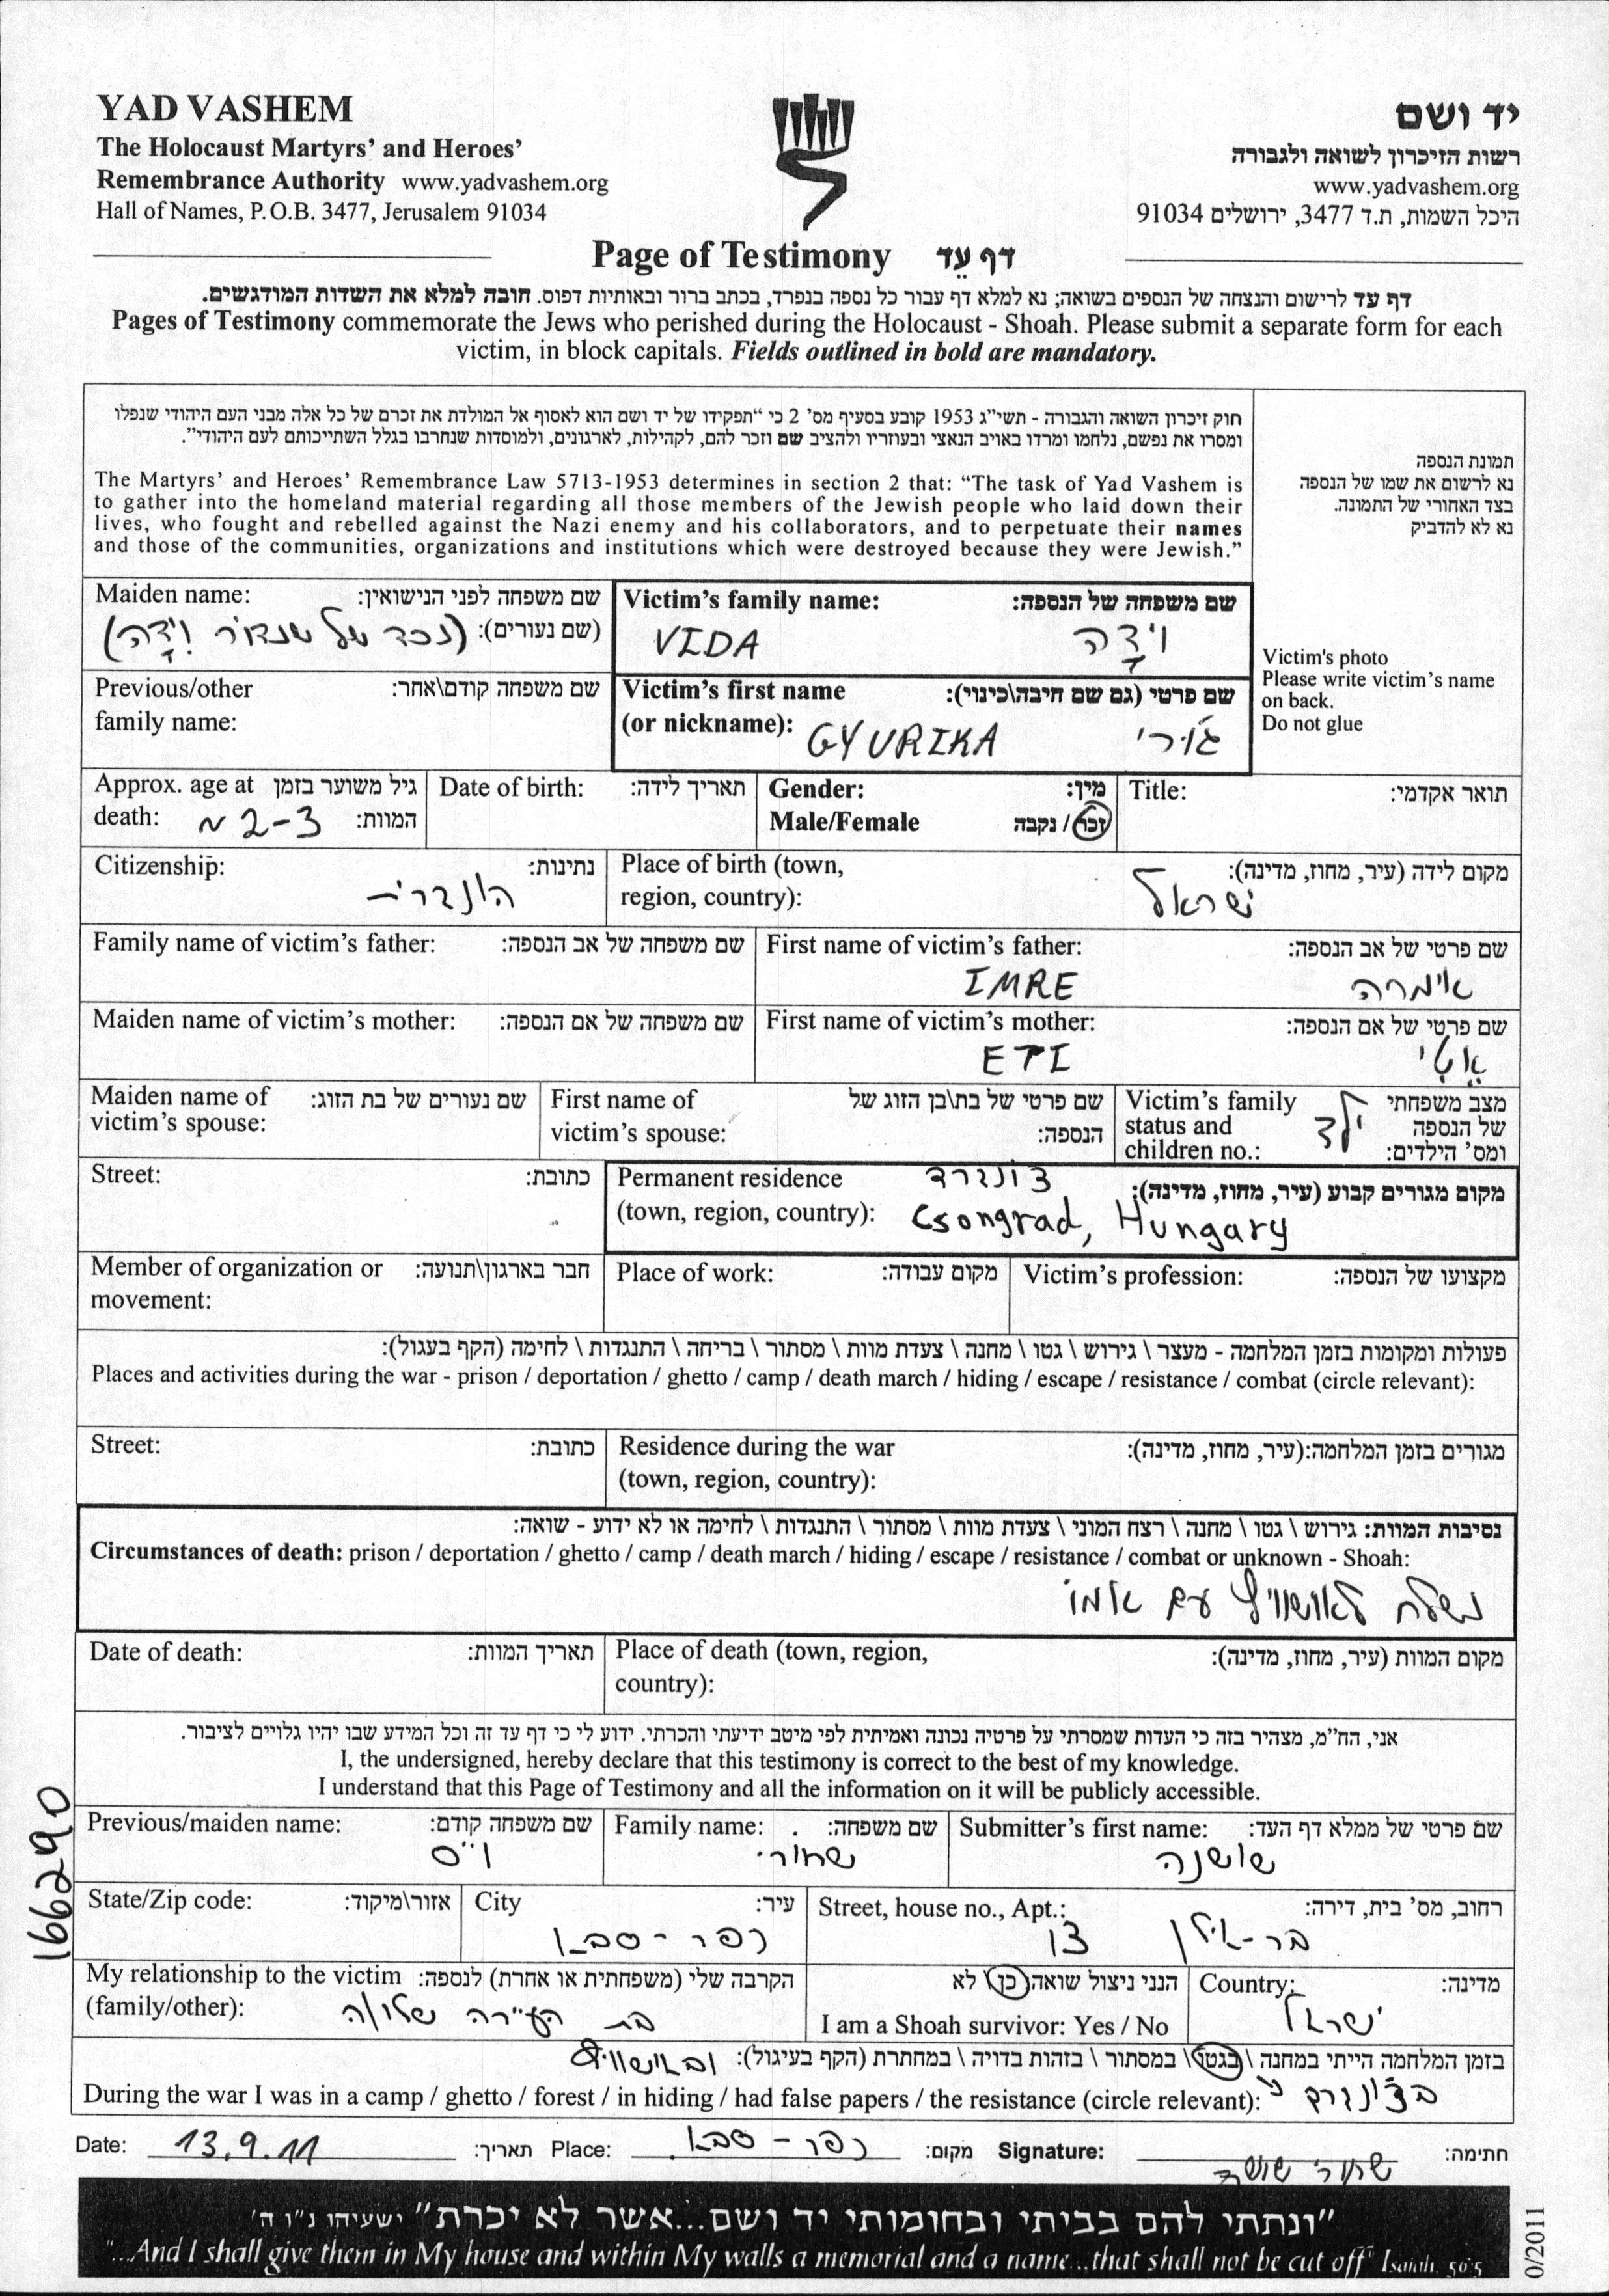 YAD VASHEM
The Holocaust Martyrs' and Heroes'
Remembrance Authority www.yadvashem.org
Hall of Names, P.O.B. 3477, Jerusalem 91034
יד ושם
רשות הזיכרון לשואה ולגבורה
www.yadvashem.org
היכל השמות, ת.ד 3477, ירושלים 91034
Page of Testimony דף עֵד
דף עד לרישום והנצחה של הנספים בשואה; נא למלא דף עבור כל נספה בנפרד, בכתב ברור ובאותיות דפוס. חובה למלא את השדות המודגשים.
Pages of Testimony commemorate the Jews who perished during the Holocaust - Shoah. Please submit a separate form for each
victim, in block capitals. Fields outlined in bold are mandatory.
חוק זיכרון השואה והגבורה - תשי"ג 1953 קובע בסעיף מס' 2 כי "תפקידו של יד ושם הוא לאסוף אל המולדת את זכרם של כל אלה מבני העם היהודי שנפלו
ומסרו את נפשם, נלחמו ומרדו באויב הנאצי ובעוזריו ולהציב שם וזכר להם, לקהילות, לארגונים, ולמוסדות שנחרבו בגלל השתייכותם לעם היהודי".
The Martyrs' and Heroes' Remembrance Law 5713-1953 determines in section 2 that: "The task of Yad Vashem is
to gather into the homeland material regarding all those members of the Jewish people who laid down their
lives, who fought and rebelled against the Nazi enemy and his collaborators, and to perpetuate their names
and those of the communities, organizations and institutions which were destroyed because they were Jewish."
תמונת הנספה
נא לרשום את שמו של הנספה
בצד האחורי של התמונה.
נא לא להדביק
Victim's photo
Please write victim's name
on back.
Do not glue
Maiden name: שם משפחה לפני הנישואין:
(שם נעורים): (נכד של שנדור וידה)
Victim's family name: שם משפחה של הנספה:
VIDA וידָה
Previous/other שם משפחה קודם\אחר:
family name:
Victim's first name שם פרטי (גם שם חיבה\כינוי):
(or nickname): GYURIKA ג'ורי
Approx. age at גיל משוער בזמן
death: ~ 2-3 המוות:
Date of birth: תאריך לידה:
Gender: מין:
Male/Female זכר / נקבה
Title: תואר אקדמי:
Citizenship: נתינות:
הונגרית
Place of birth (town, מקום לידה (עיר, מחוז, מדינה):
region, country): ישראל
Family name of victim's father: שם משפחה של אב הנספה:
First name of victim's father: שם פרטי של אב הנספה:
IMRE אימרה
Maiden name of victim's mother: שם משפחה של אם הנספה:
First name of victim's mother: שם פרטי של אם הנספה:
ETI אֶטִי
Maiden name of שם נעורים של בת הזוג:
victim's spouse:
First name of שם פרטי של בת\בן הזוג של
victim's spouse: הנספה:
Victim's family מצב משפחתי
status and ילד של הנספה
children no.: ומס' הילדים:
Street: כתובת:
Permanent residence צ'ונגרד מקום מגורים קבוע (עיר, מחוז, מדינה):
(town, region, country): Csongrad, Hungary
Member of organization or חבר בארגון\תנועה:
movement:
Place of work: מקום עבודה:
Victim's profession: מקצועו של הנספה:
פעולות ומקומות בזמן המלחמה - מעצר \ גירוש \ גטו \ מחנה \ צעדת מוות \ מסתור \ בריחה \ התנגדות \ לחימה (הקף בעגול):
Places and activities during the war - prison / deportation / ghetto / camp / death march / hiding / escape / resistance / combat (circle relevant):
Street: כתובת:
Residence during the war מגורים בזמן המלחמה:(עיר, מחוז, מדינה):
(town, region, country):
נסיבות המוות: גירוש \ גטו \ מחנה \ רצח המוני \ צעדת מוות \ מסתור \ התנגדות \ לחימה או לא ידוע - שואה:
Circumstances of death: prison / deportation / ghetto / camp / death march / hiding / escape / resistance / combat or unknown - Shoah:
נשלח לאושוויץ עם אמו
Date of death: תאריך המוות:
Place of death (town, region, מקום המוות (עיר, מחוז, מדינה):
country):
אני, הח"מ, מצהיר בזה כי העדות שמסרתי על פרטיה נכונה ואמיתית לפי מיטב ידיעתי והכרתי. ידוע לי כי דף עד זה וכל המידע שבו יהיו גלויים לציבור.
I, the undersigned, hereby declare that this testimony is correct to the best of my knowledge.
I understand that this Page of Testimony and all the information on it will be publicly accessible.
166290
Previous/maiden name: שם משפחה קודם:
וייס
Family name: שם משפחה:
שחורי
Submitter's first name: שם פרטי של ממלא דף העד:
שושנה
State/Zip code: אזור\מיקוד:
City עיר:
כפר-סבא
Street, house no., Apt.: רחוב, מס' בית, דירה:
בר-אילן 13
My relationship to the victim הקרבה שלי (משפחתית או אחרת) לנספה:
(family/other): בת העיירה שלו/ה
הנני ניצול שואה כן \ לא
I am a Shoah survivor: Yes / No
Country: מדינה:
ישראל
בזמן המלחמה הייתי במחנה \ בגטו \ במסתור \ בזהות בדויה \ במחתרת (הקף בעיגול): ובאושוויץ
During the war I was in a camp / ghetto / forest / in hiding / had false papers / the resistance (circle relevant): בצ'ונגרד
Date: 13.9.11 תאריך: Place: כפר-סבא מקום: Signature: שחורי שושנה חתימה:
"ונתתי להם בביתי ובחומותי יד ושם...אשר לא יכרת" ישעיהו נ"ו ה'
"...And I shall give them in My house and within My walls a memorial and a name...that shall not be cut off" Isaiah. 56:5
0/2011